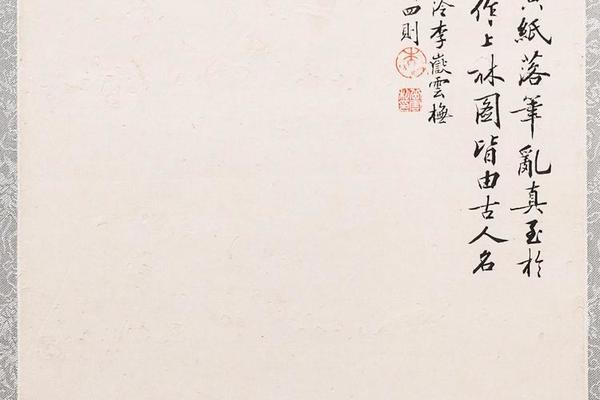 紙落筆亂真至於
作上林圖皆由古人名
泠李嶽雲極
四則